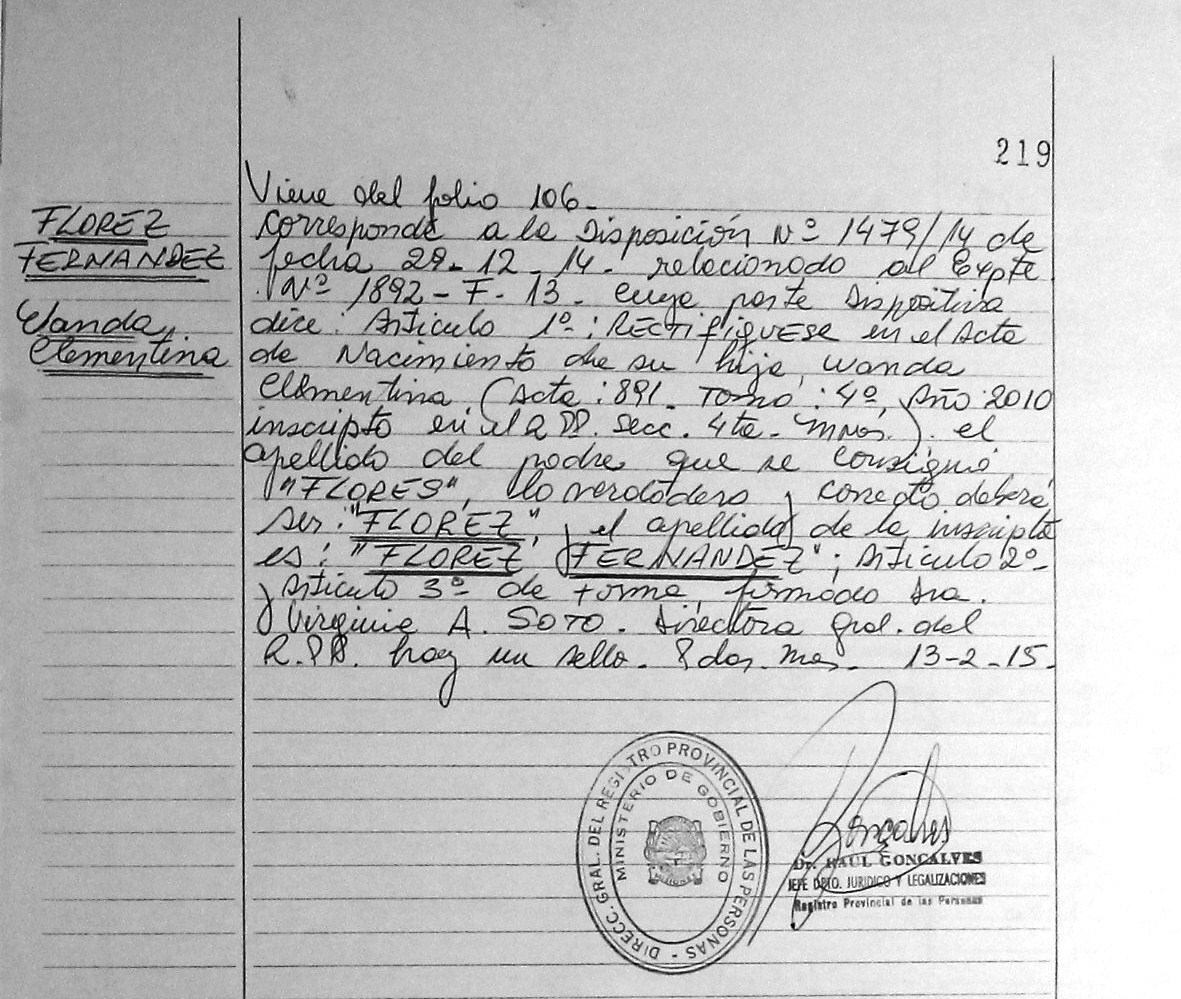 219
FLOREZ
FERNANDEZ
Wanda
Clementina
Viene del folio 106-
Corresponde a la Disposición Nº 1479/14 de
fecha 29-12-14- relacionado al Expte
Nº 1892-F-13- cuya parte Dispositiva
dice: Articulo 1º: RECTIFIQUESE en el Acta
de Nacimiento de su hija, Wanda
Clementina (Acta: 891- Tomo: 4º, Año 2010
inscripto en el RPP. Secc. 4ta- Mnes.). el
apellido del padre que se consignó
"FLORES", lo verdadero y correcto deberá
ser: "FLOREZ", y el apellido de la inscripta
es: "FLOREZ FERNANDEZ"; Articulo 2º-
y Articulo 3º de forma, firmado Sra.
Virginia A. SOTO. Directora Gral. del
R.PP. hay un sello. Pdas. Mnes. 13-2-15-
DIRECC. GRAL. DEL REGISTRO PROVINCIAL DE LAS PERSONAS -
MINISTERIO DE GOBIERNO
MISIONES
Goncalves
Dr. RAUL GONCALVES
JEFE DPTO. JURIDICO Y LEGALIZACIONES
Registro Provincial de las Personas